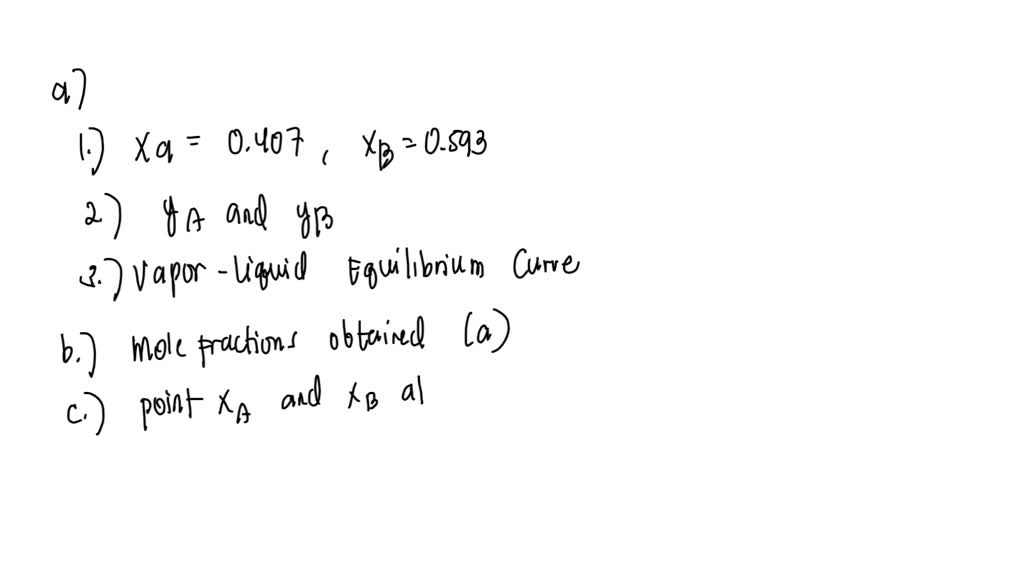 a)
1.) Xa = 0.407, XB = 0.593
2.) yA and yB
3.) Vapor-liquid Equilibrium Curve
b.) mole fractions obtained (a)
c.) point XA and XB al